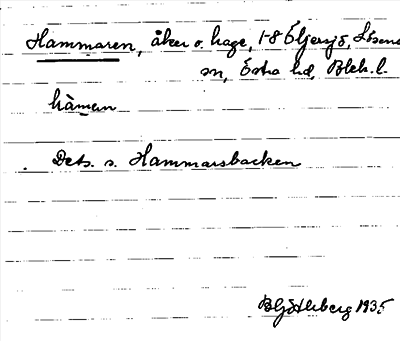 Hammaren, åker o. hage, 1-8 Öljersjö, Lösens
sn, Östra hd, Blek. l.
hàmen
Dets. s. Hammarsbacken
1935